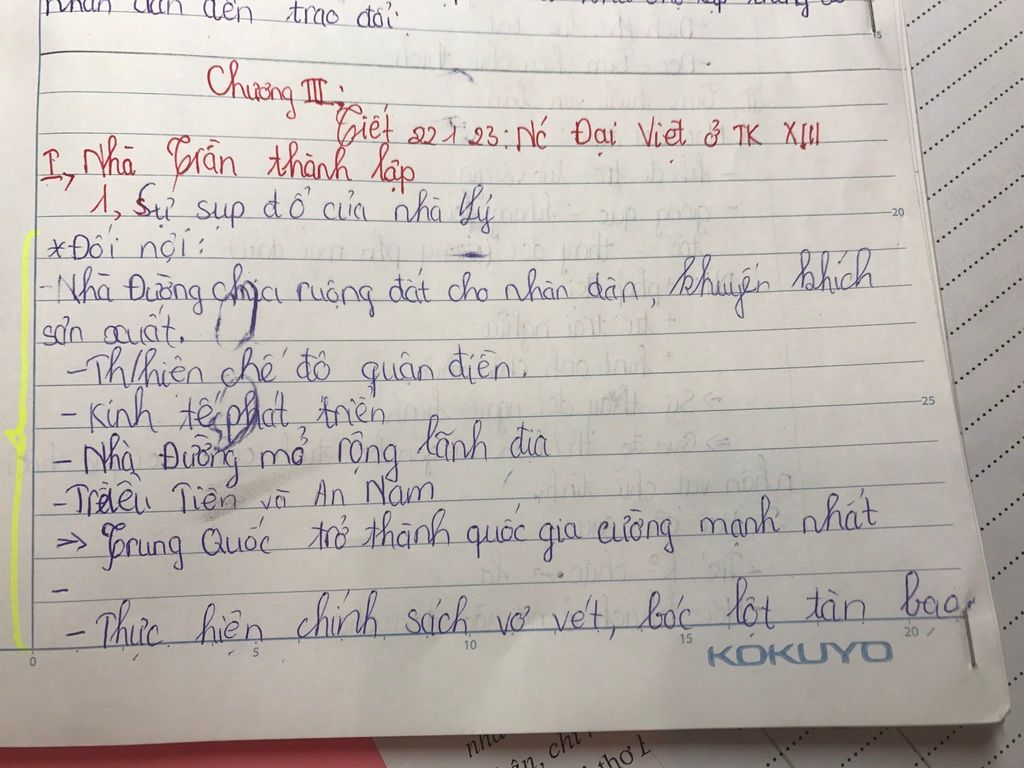 nhân dân đến trao đổi.
Chương III:
Tiết 22 + 23: Nć Đại Việt ở TK XIII
I, Nhà Trần thành lập
1, Sự sụp đổ của nhà Lý
20
*Đối nội:
-Nhà Đường chia ruộng đất cho nhân dân, khuyến khích
sản xuất.
-Th/hiện chế độ quân điền.
- Kinh tế phát triển
25
- Nhà Đường mở rộng lãnh địa
-Triều Tiên và An Nam
=> Trung Quốc trở thành quốc gia cường mạnh nhất
-
- Thực hiện chính sách vơ vét, bóc lột tàn bạo,
0 5 10 15 20
KOKUYO
thơ